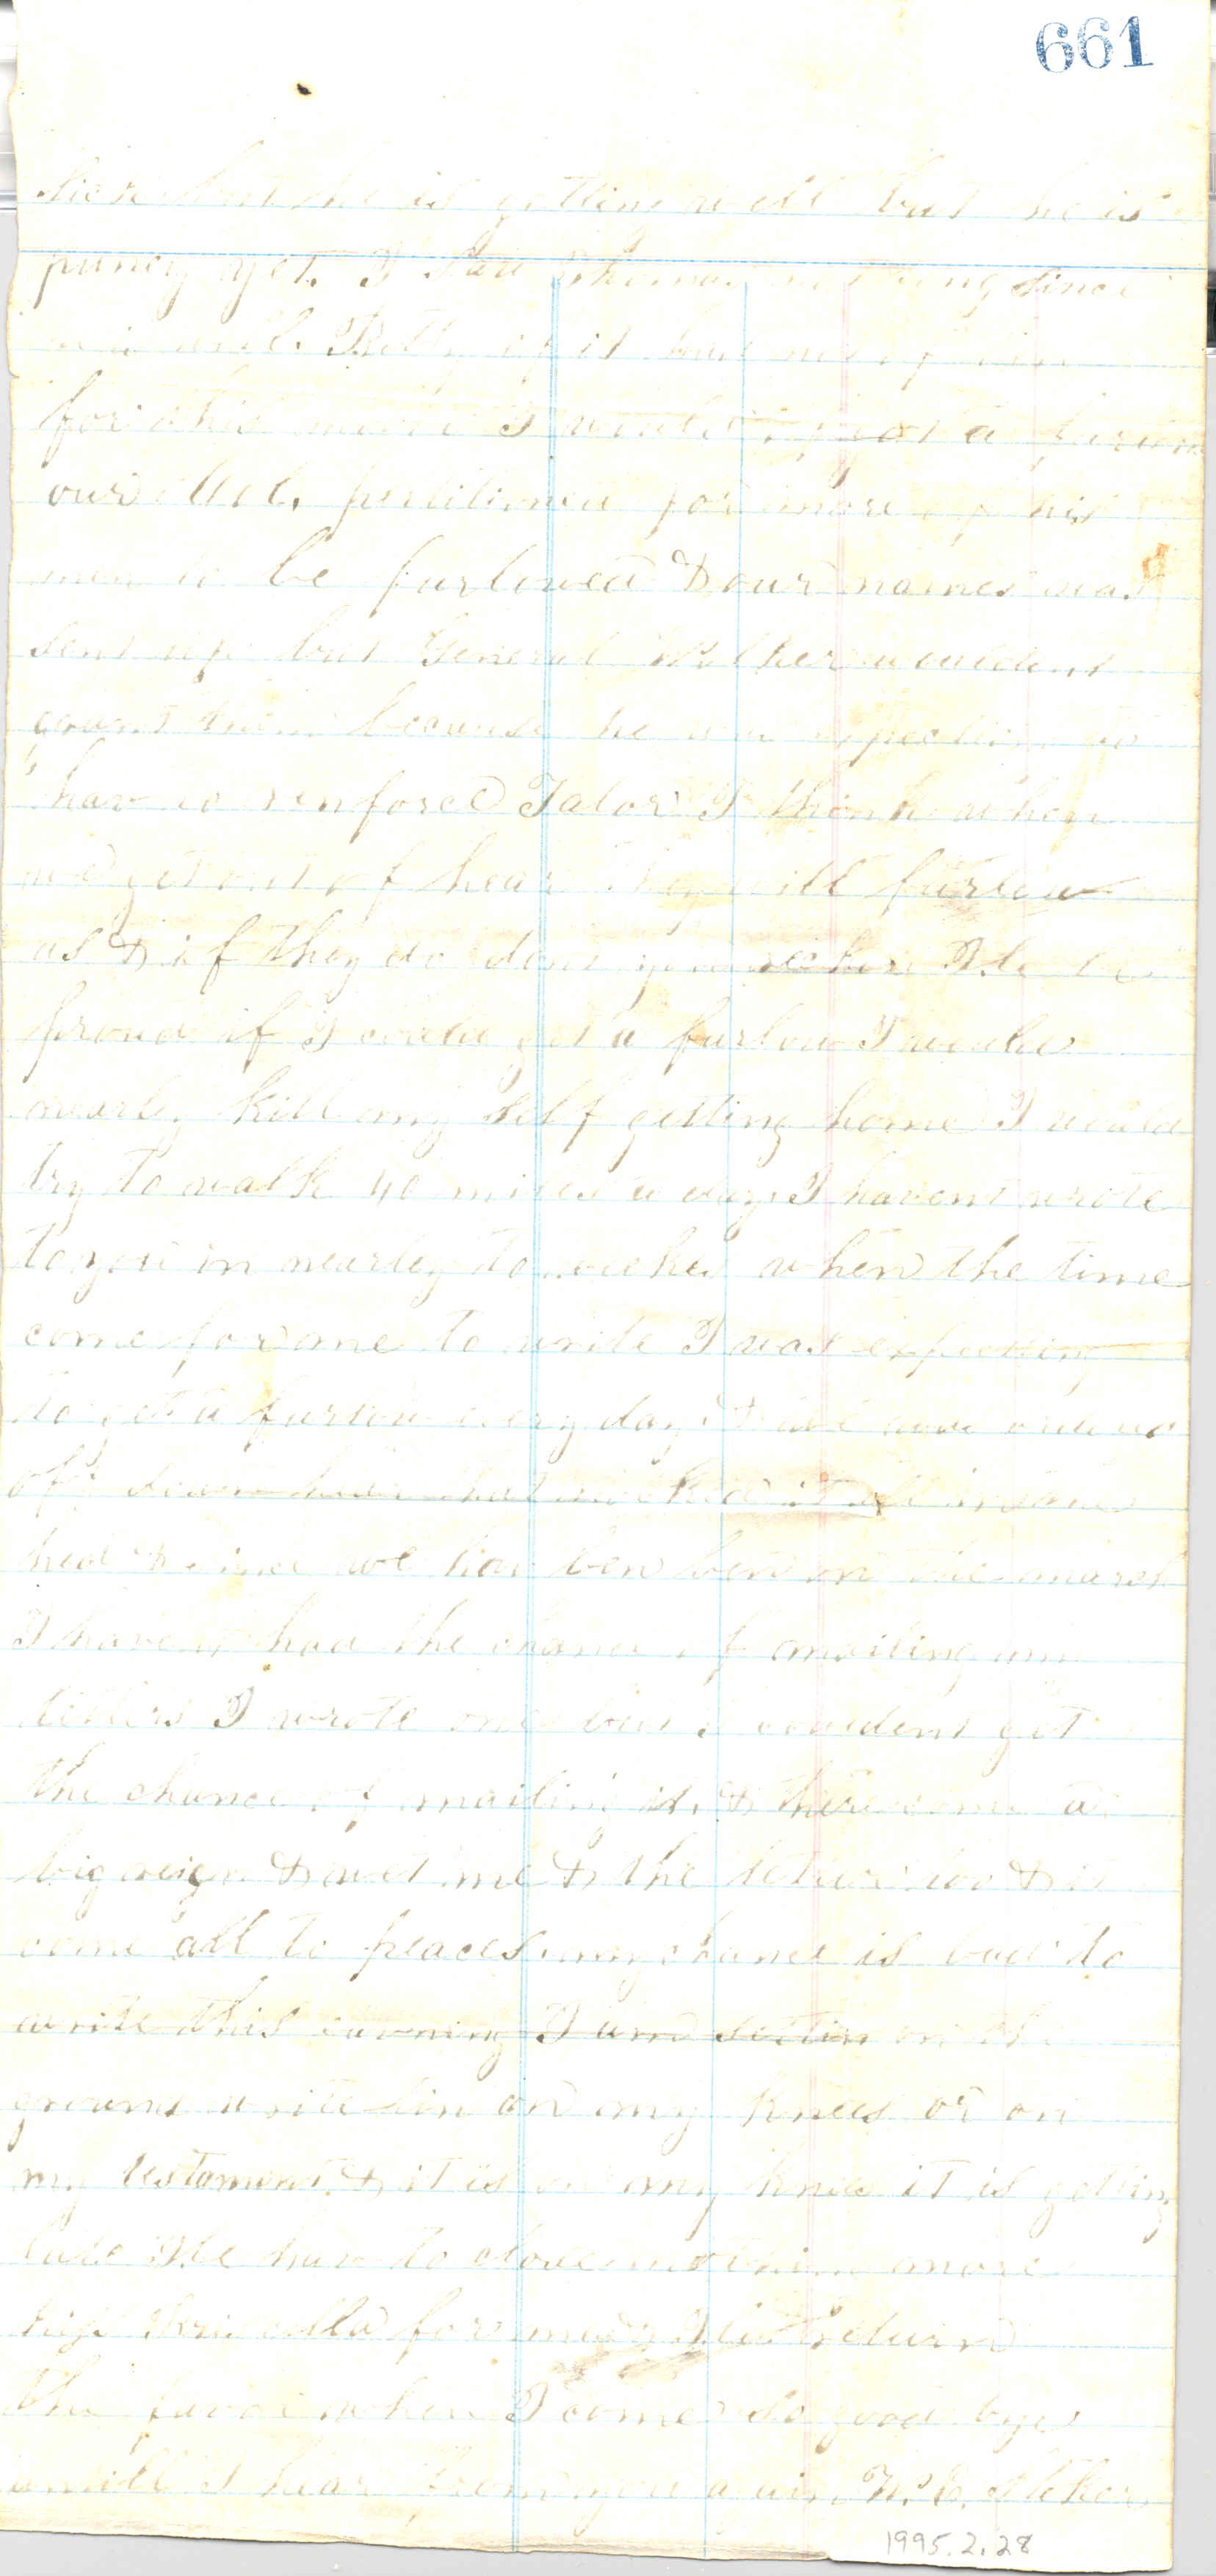 661
but she is getting well but he is
puney yet. I saw Thomas since
well. Betty if it had
for this move I would
our Col. petitioned for more of his
men to be furlowed & our names was
sent up but General Walker woulddent
grant them because he was expecting to
hav to renforce Talor I think when
we get out of hear they will furlow
us & if they do dont you recken Ile be
proud if I could get a furlow I would
nearly kill my self getting home I would
try to walk 40 miles a day. I havent wrote
to you in nearly to weekes when the time
come for me to write I was expecting
to get a furlow every day & we
of down here that nocked it all in the
head & since we hav ben ben on the march
I havent had the chance of mailing
letters I wrote one but I couldent get
the chance of mailing it. & there come a
big reign & wet me & the letter too & it
come all to peaces. my chance is bad to
write this eavning I am settin on the
ground writein on my knees or on
my testament & it is on my knee it is getting
late Ile hav to close nothin more
for me Ile return
the favor when I come so good bye
untill I hear from you again W. E. Stoker
1995.2.28